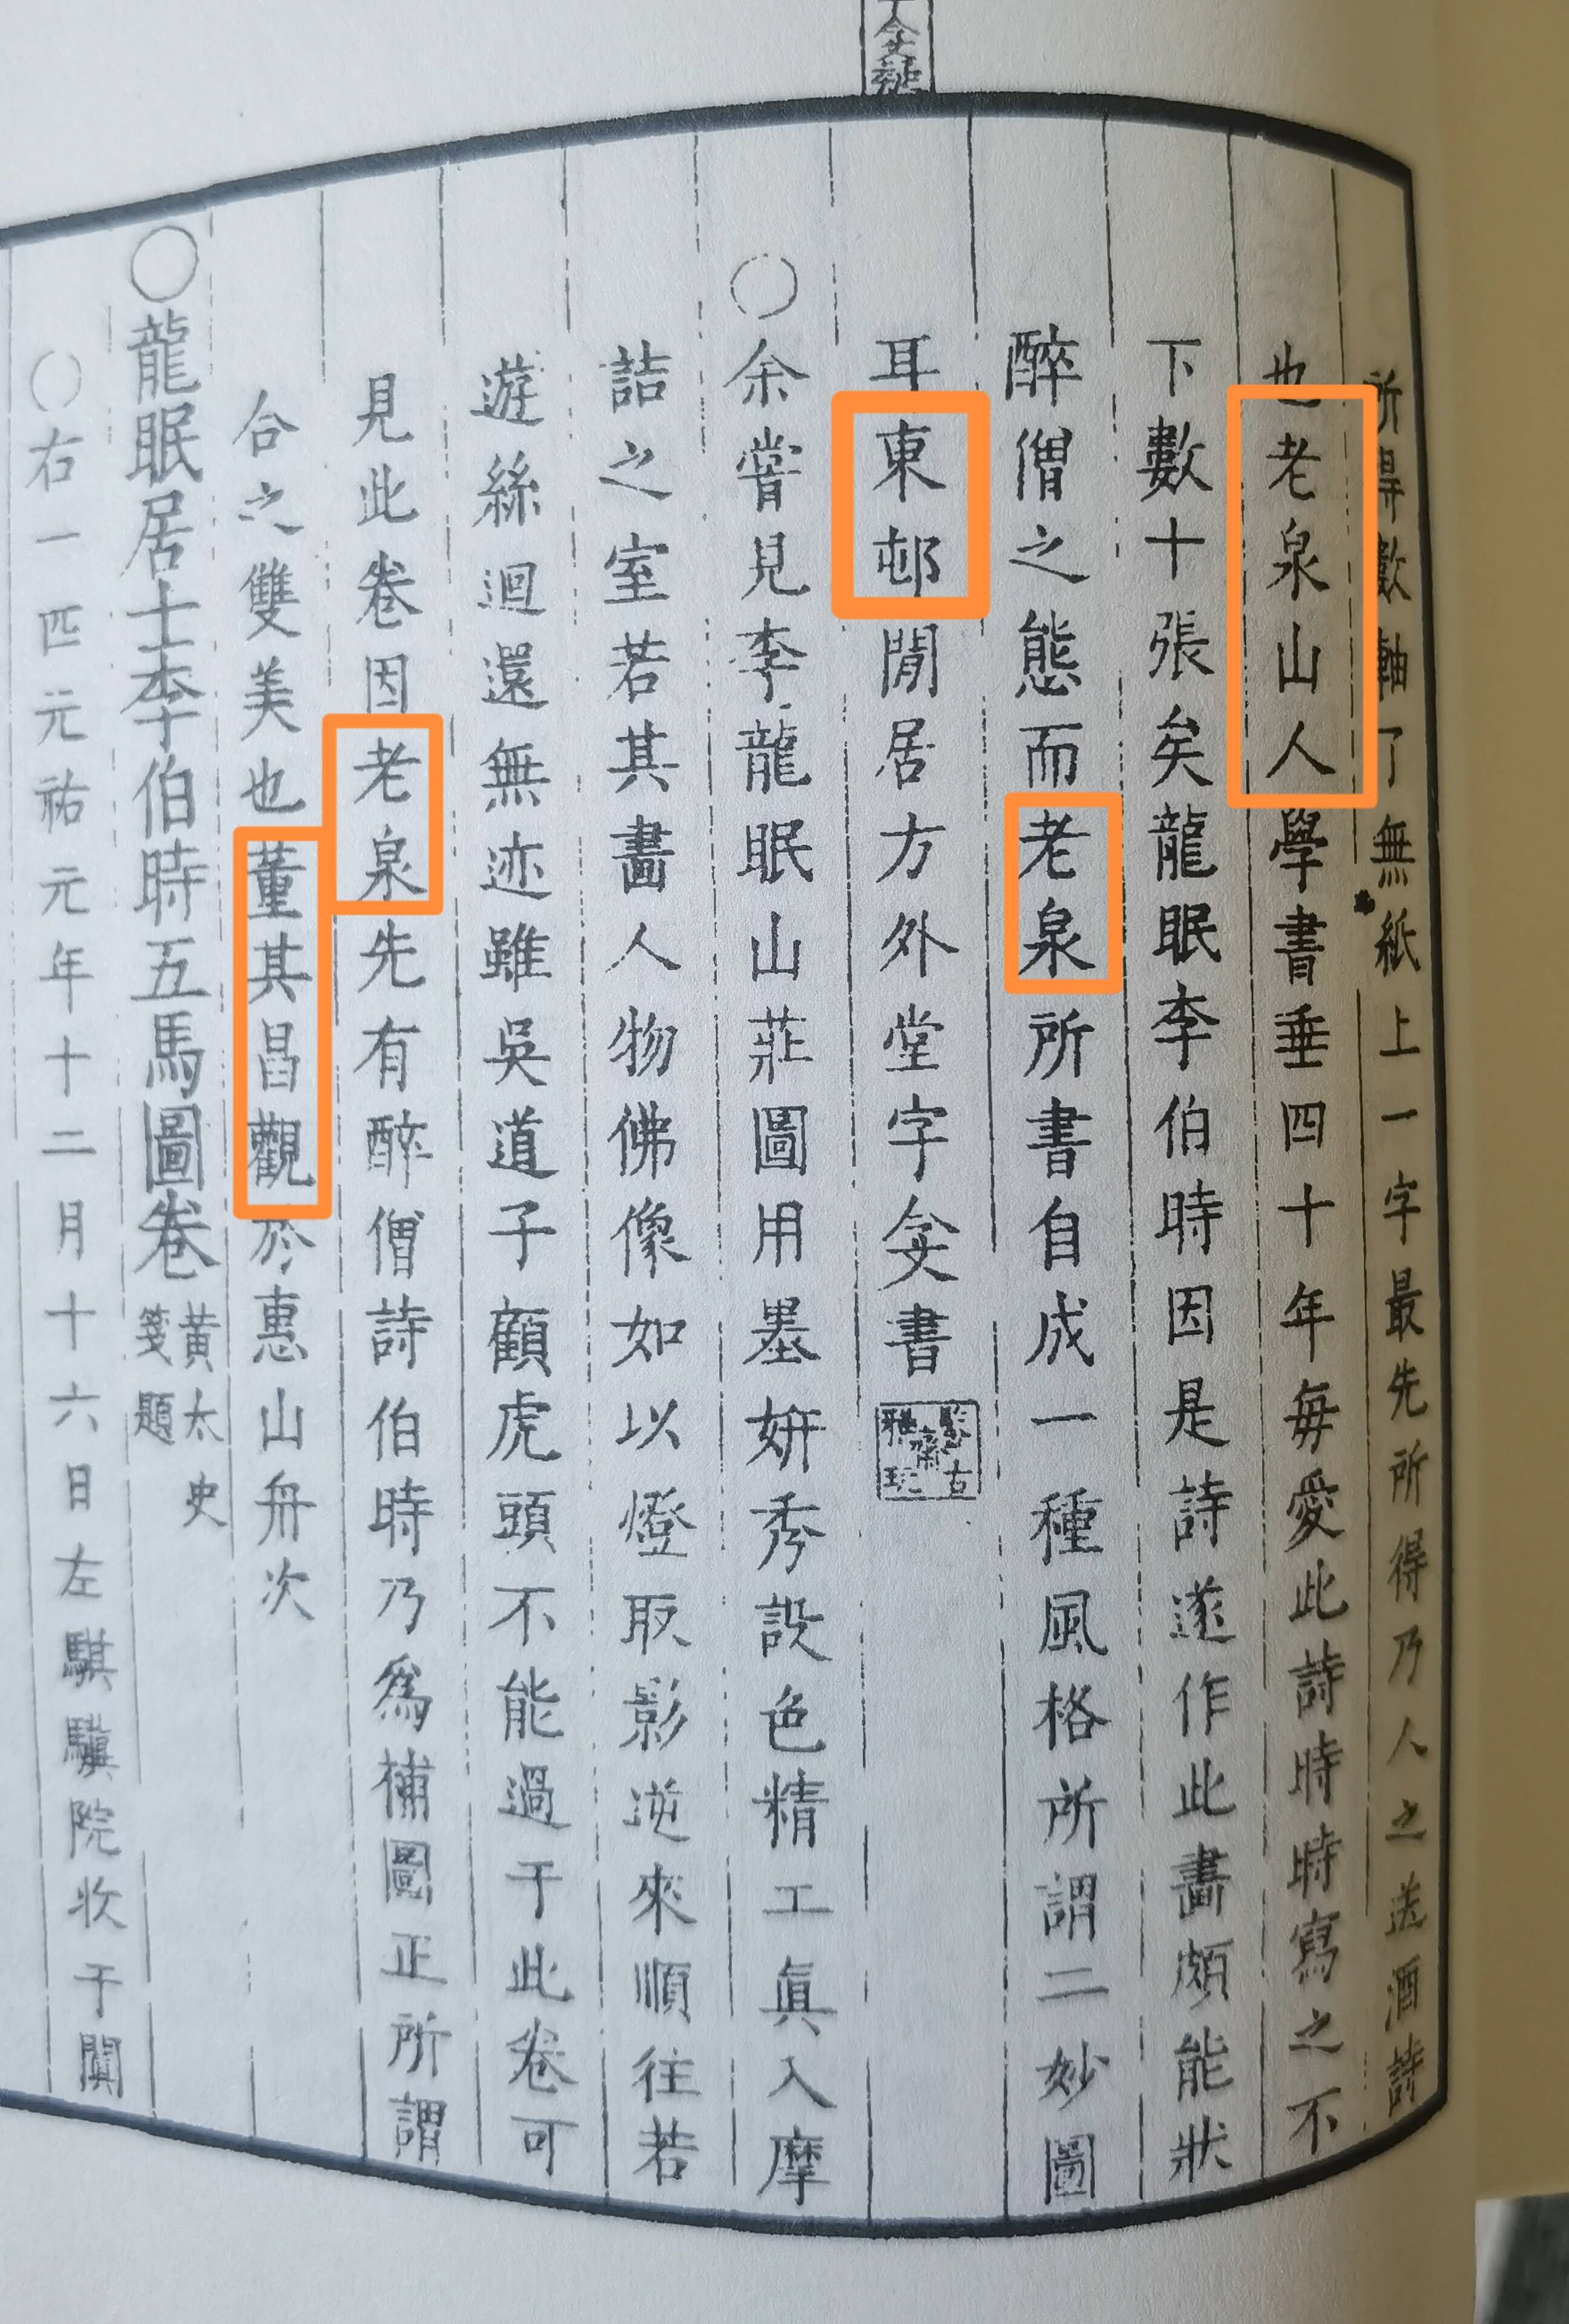 所得數軸了無紙上一字最先所得乃人之送酒詩
也老泉山人學書垂四十年每愛此詩時時寫之不
下數十張矣龍眠李伯時因是詩遂作此畫頗能狀
醉僧之態而老泉所書自成一種風格所謂二妙圖
耳東邨閒居方外堂字書
○余嘗見李龍眠山莊圖用墨妍秀設色精工眞入摩
詰之室若其畫人物佛像如以燈取影逆來順往若
遊絲迴還無迹雖吳道子顧虎頭不能過于此卷可
見此卷因老泉先有醉僧詩伯時乃爲補圖正所謂
合之雙美也董其昌觀於惠山舟次
○龍眠居士李伯時五馬圖卷
黃太史
箋題
○右一匹元祐元年十二月十六日左騏驥院收于闐